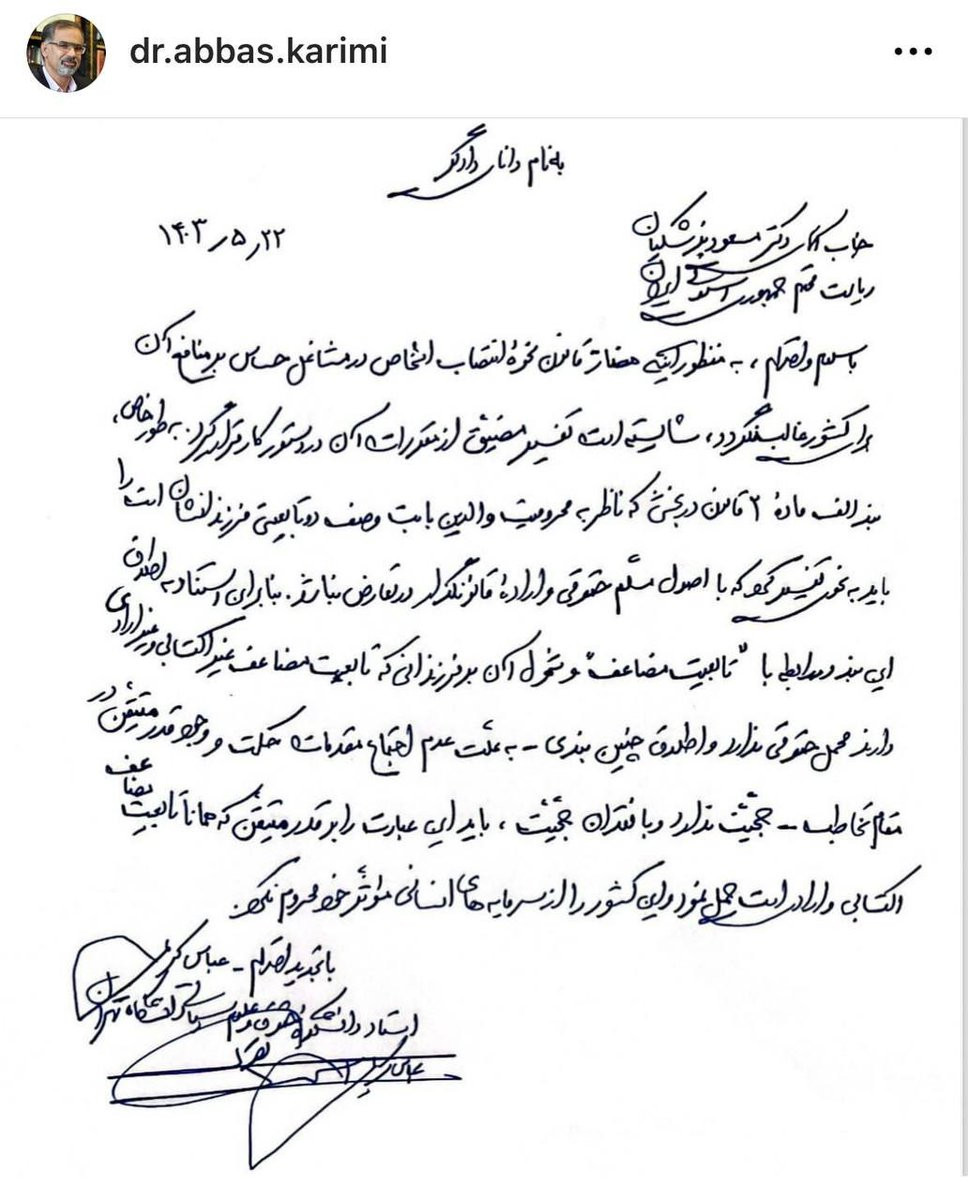 dr.abbas.karimi
به نام دانای دادگر
۱۴۰۳٫۵٫۲۲
جناب آقای دکتر مسعود پزشکیان
ریاست محترم جمهوری اسلامی ایران
با سلام و احترام، به منظور اینکه مضار قانون نحوهٔ انتصاب اشخاص در مشاغل حساس بر منافع آن
برای کشور غالب نگردد، شایسته است تفسیر مضیق از مقررات آن در دستور کار قرار گیرد. به طور خاص،
بند الف مادهٔ ۲ قانون در بخشی که ناظر به محرومیت والدین بابت وصف دو تابعیتی فرزندانشان است را
باید به نحوی تفسیر کرد که با اصول مسلّم حقوقی و ارادهٔ قانونگذار در تعارض نباشد. بنابراین استناد به اطلاق
این بند در رابطه با "تابعیت مضاعف" و شمول آن بر فرزندانی که تابعیت مضاعف غیر اکتسابی و غیر ارادی
دارند محمل حقوقی ندارد و اطلاق چنین بندی - به علّت عدم اجتماع مقدمات حکمت و وجود قدر متیقّن در
مقام تخاطب - حجّیّت ندارد و با فقدان حجّیّت، باید این عبارت را بر قدر متیقّن که همانا تابعیت مضاعف
اکتسابی و ارادی است حمل نمود و این کشور را از سرمایه های انسانی مؤثّر خود محروم نکرد.
با تجدید احترام - عباس کریمی
استاد دانشکدهٔ حقوق و علوم سیاسی دانشگاه تهران